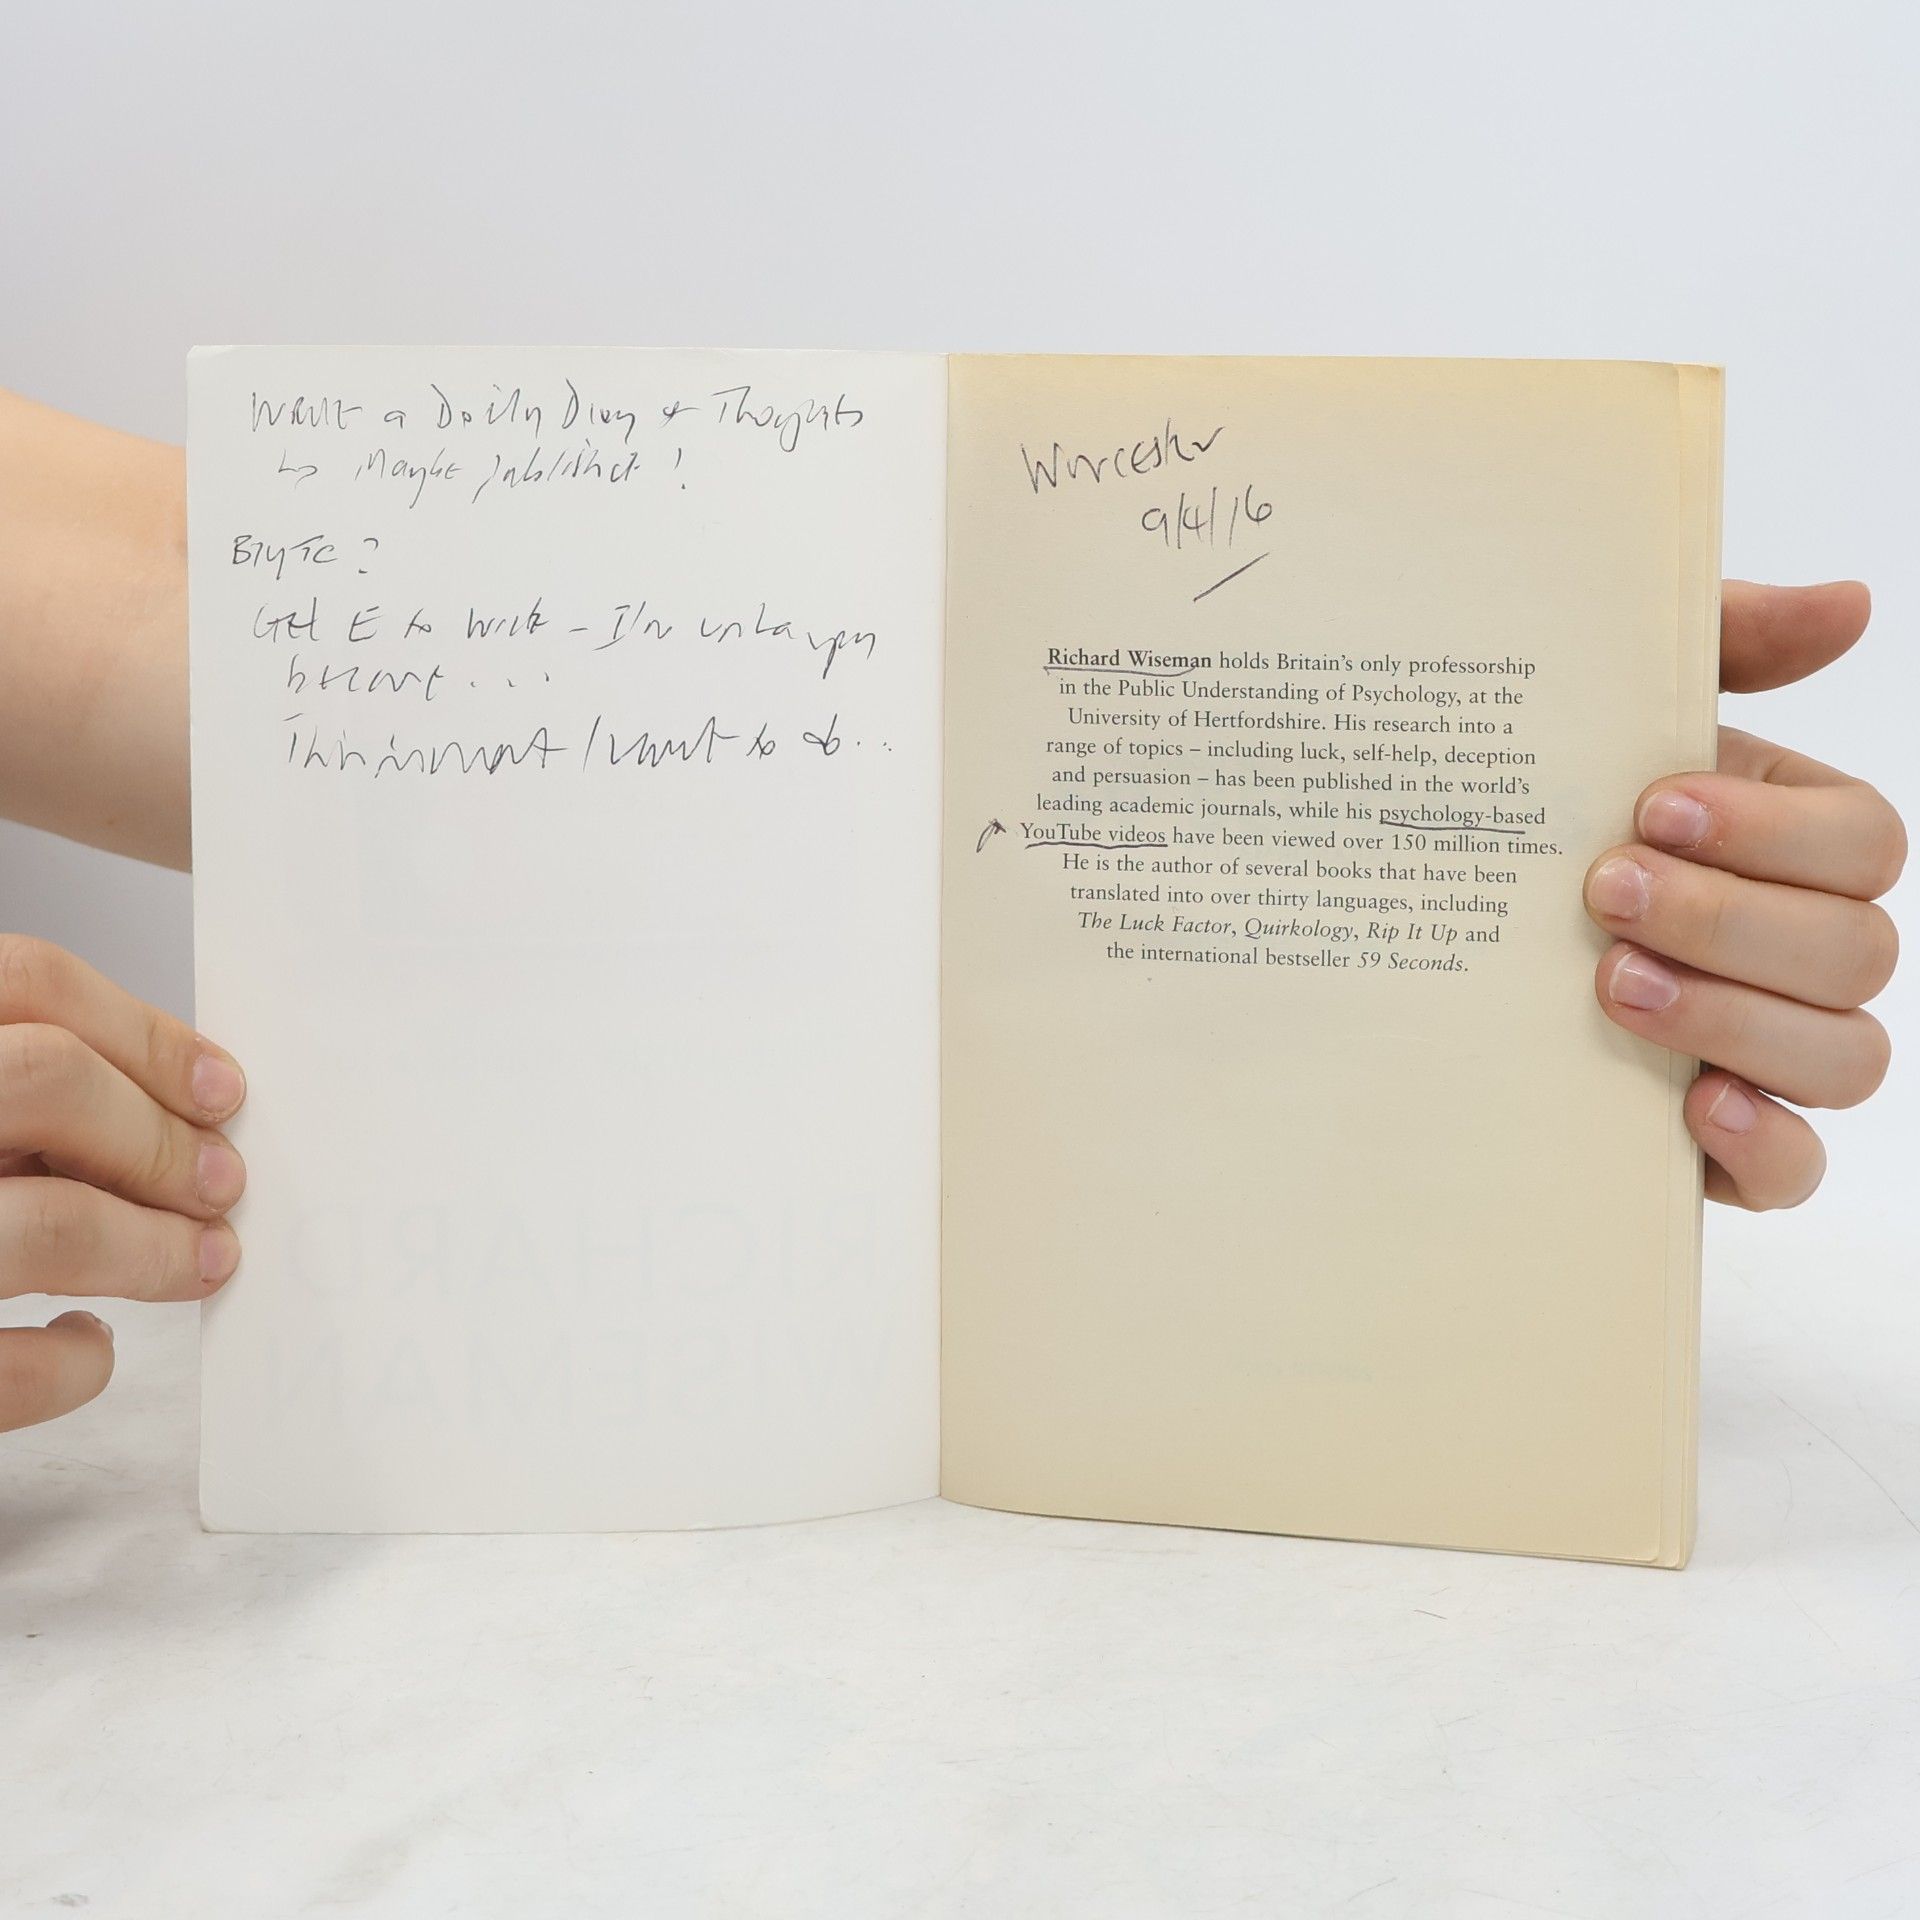 WRITE a Daily Diary & Thoughts
↳ Maybe publish it!
Get E to write – I'm unhappy
because ...
I want to do...
Worcester
9/4/16
Richard Wiseman holds Britain's only professorship
in the Public Understanding of Psychology, at the
University of Hertfordshire. His research into a
range of topics – including luck, self-help, deception
and persuasion – has been published in the world's
leading academic journals, while his psychology-based
YouTube videos have been viewed over 150 million times.
He is the author of several books that have been
translated into over thirty languages, including
The Luck Factor, Quirkology, Rip It Up and
the international bestseller 59 Seconds.
RICHARD
WISEMAN